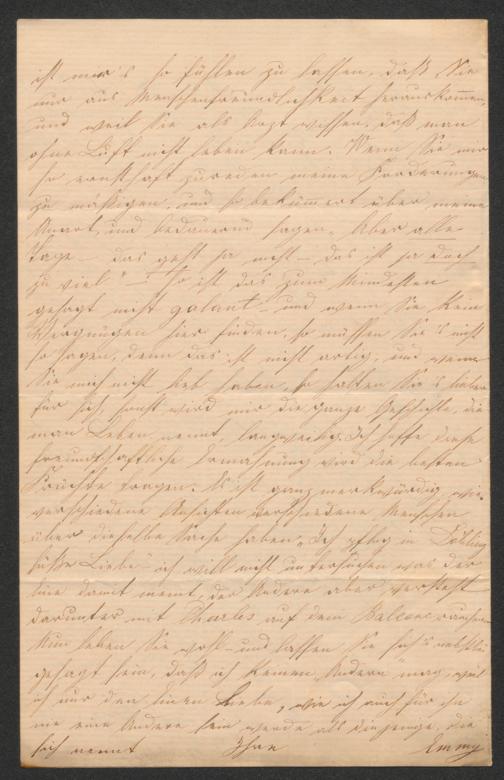 ist mir's so fühlen zu lassen, daß Sie
nur aus Menschenfreundlichkeit herauskommen,
und weil Sie als Arzt wissen, daß man
ohne Luft nicht leben kann. Wenn Sie mir
so ernsthaft zureden meine Forderungen
zu mäßigen, und so bekümmert über meine
Unart, und bedauernd sagen, "Aber alle
Tage — das geht ja nicht — das ist ja doch
zu viel" — So ist das zum Mindesten
gesagt nicht galant — und wenn Sie kein
Vergnügen hier finden, so müssen Sie's nicht
so sagen, denn das ist nicht artig, und wenn
Sie mich nicht lieb haben, so halten Sie's lieber
für sich, sonst wird mir die ganze Geschichte, die
man Leben nennt, langweilig. Ich hoffe diese
freundschaftliche Ermahnung wird die besten
Früchte tragen. Es ist ganz merkwürdig, wie
verschiedene Ansichten verschiedene Menschen
über dieselbe Sache haben. "Ich pfleg in Döbling
süße Liebe" ich will nicht untersuchen was der
Eine damit meint, der Andere aber versteht
darunter mit Charles auf dem Balcone rauchen.
Nun leben Sie wohl — und lassen Sie sich's
gesagt sein, daß ich keinen Andern mag, weil
ich nur den Einen liebe, wie ich auch für ihn
nie eine Andere sein werde als diejenige, die
sich nennt Ihre Emmy